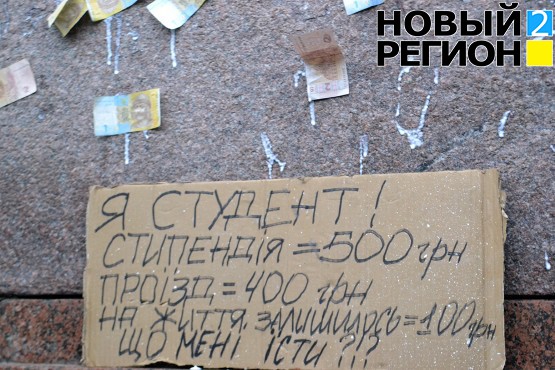 НОВЫЙ 2
РЕГИОН
Я СТУДЕНТ!
СТИПЕНДІЯ = 500 грн
ПРОЇЗД = 400 грн
НА ЖИТТЯ ЗАЛИШИЛОСЬ = 100 грн
ЩО МЕНІ ЇСТИ ?!?